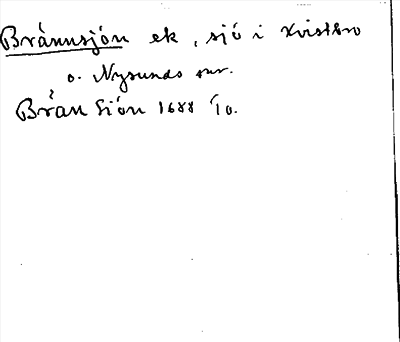 Brännsjön ek, sjö i Kvistbro
o. Nysunds snr.
Brån Siön 1688 Io.